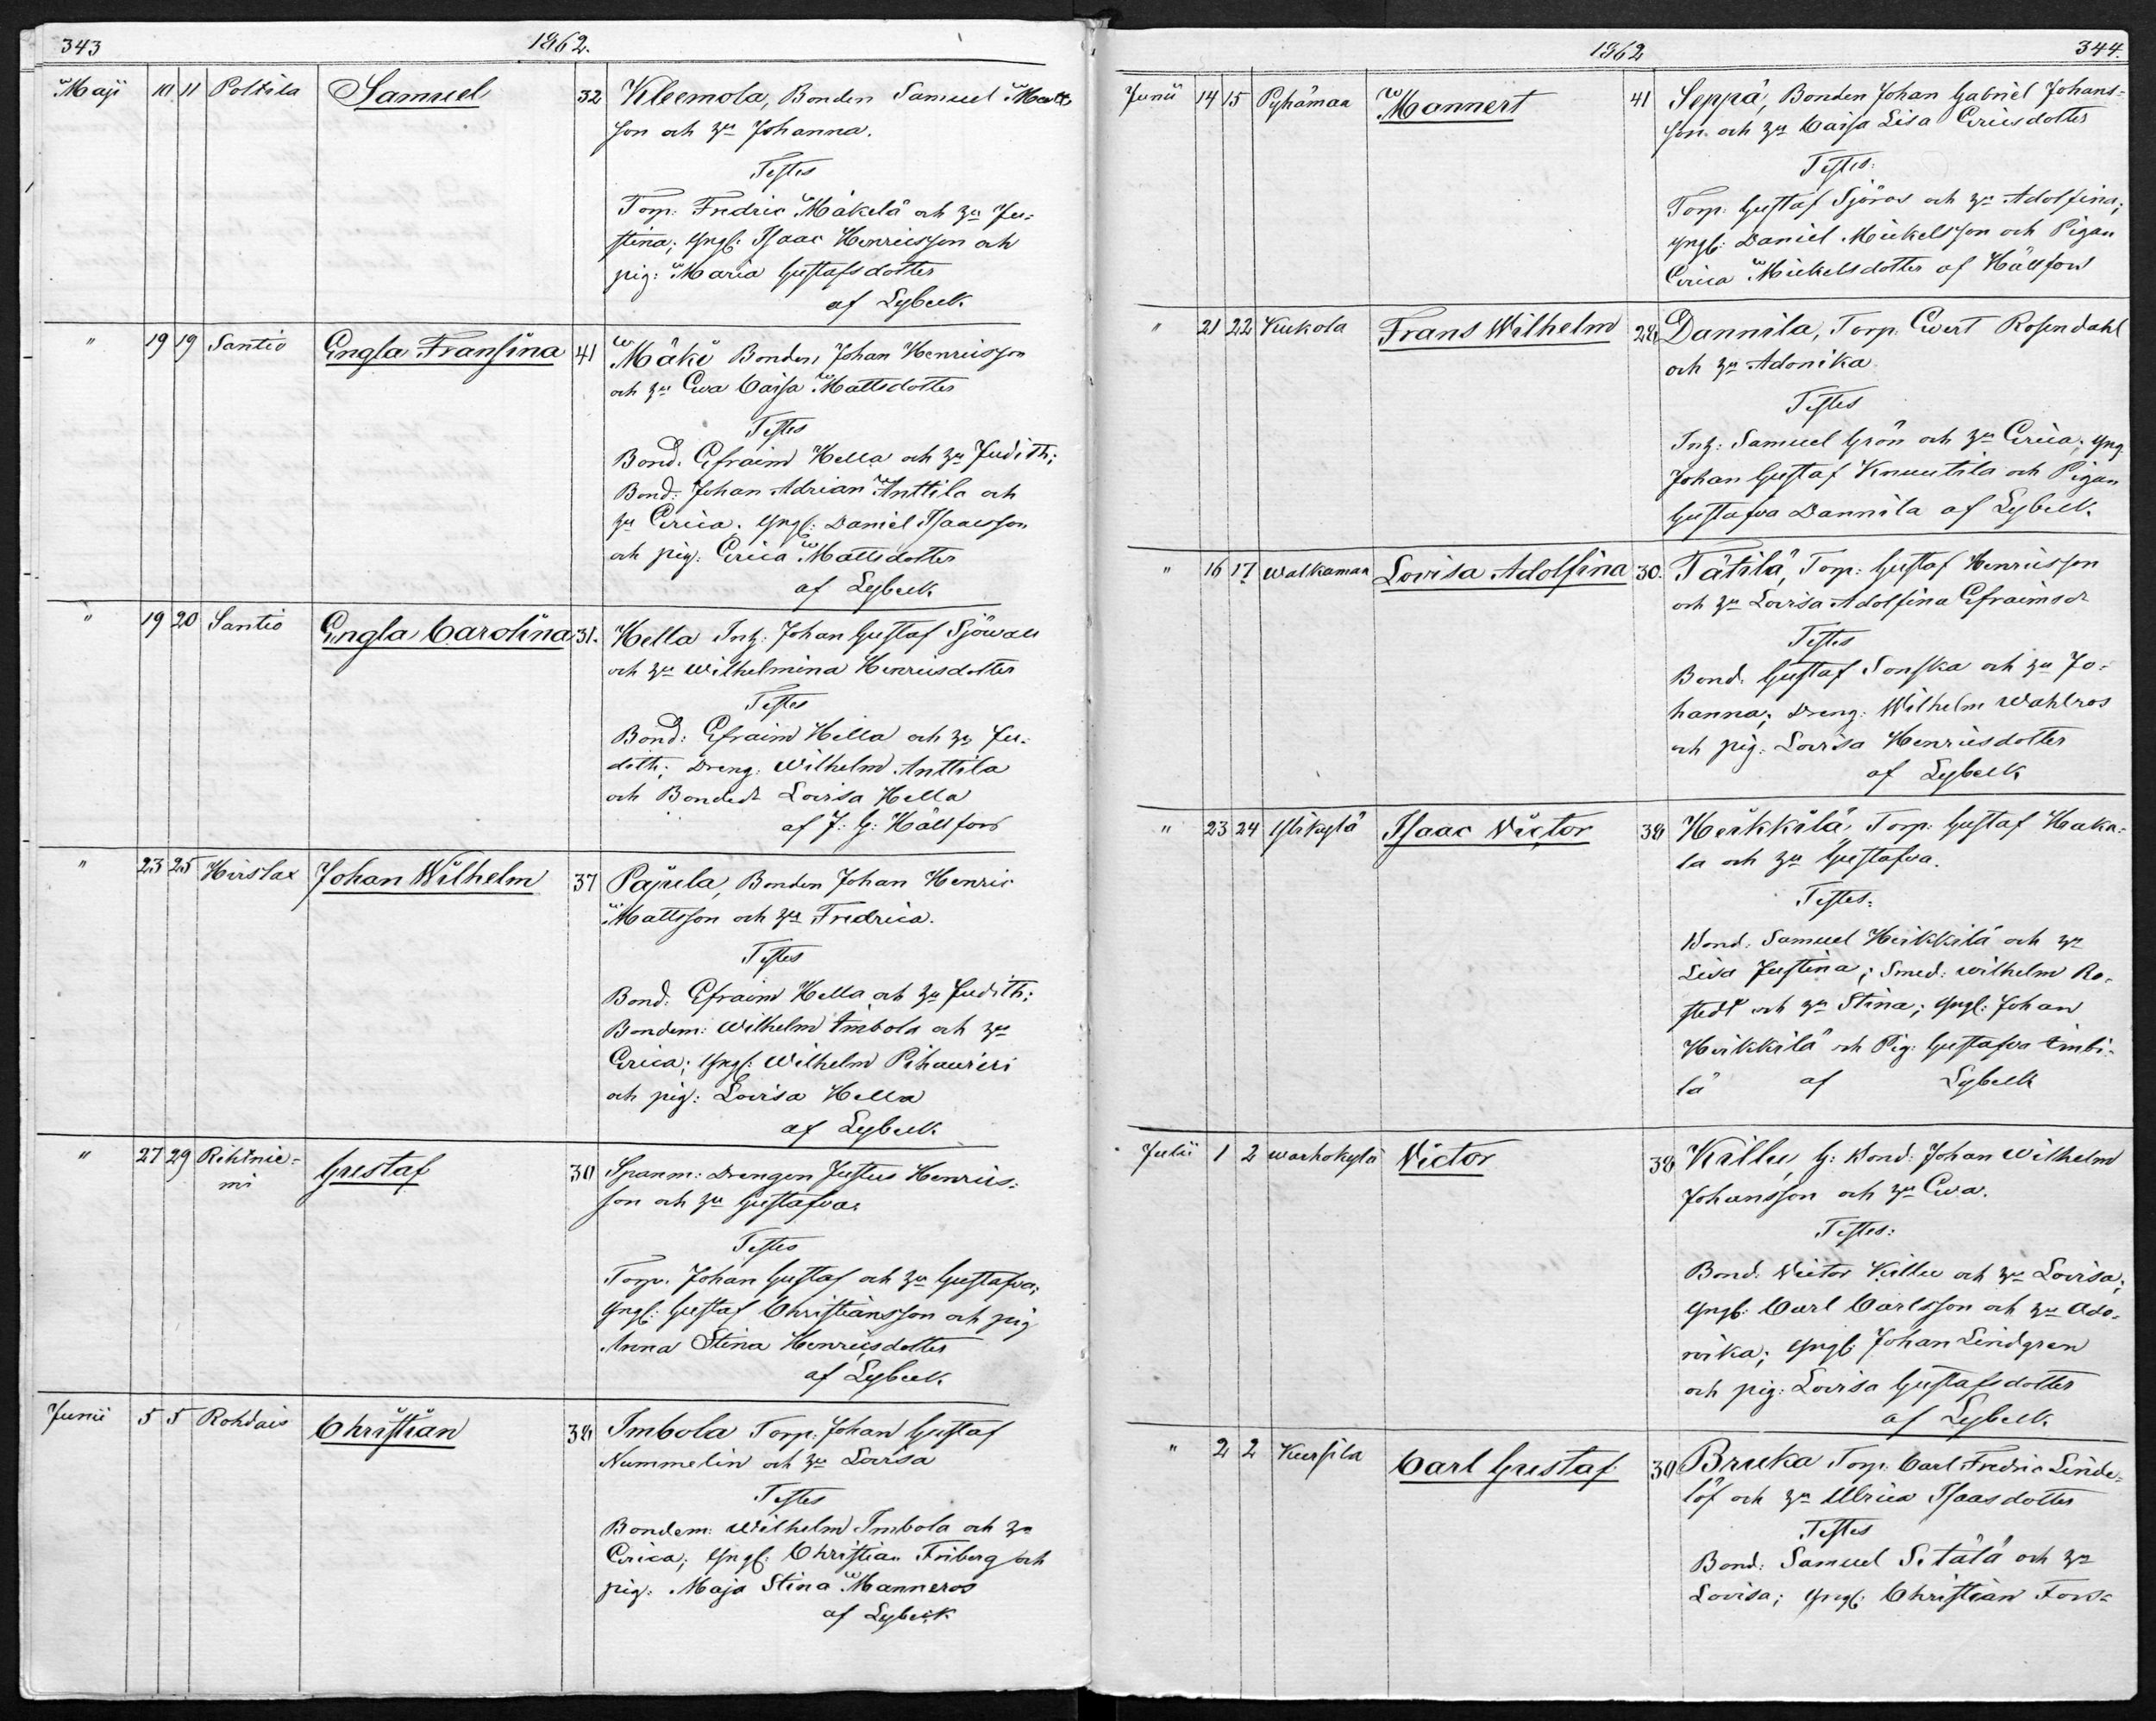 343
1862.
Maji 10 11 Polttila Samuel 32 Kleemola, Bonden Samuel Matts
son och hu Johanna.
Testes
Torp: Fredric Mäkelä och hu Ju-
stina; yngl: Isaac Henricsson och
pig: Maria Gustafsdotter
af Lybeck.
" 19 19 Santio Engla Fransina 41 Mäki Bonden Johan Henricsson
och hu Ewa Caisa Mattsdotter
Testes
Bond. Efraim Hella och hu Judith;
Bond: Johan Adrian Anttila och
hu Erica. yngl: Daniel Isaacsson
och pig: Erica Mattsdotter
af Lybeck.
" 19 20 Santio Engla Carolina 31. Hella Inh: Johan Gustaf Sjöwall
och hu Wilhelmina Henricsdotter
Testes
Bond: Efraim Hella och hu Ju-
dith; Dreng: Wilhelm Anttila
och Bondedr Lovisa Hella
af J: G: Hällfors
" 23 25 Hirslax Johan Wilhelm 37 Pajula, Bonden Johan Henric
Mattsson och hu Fredrica.
Testes
Bond: Efraim Hella och hu Judith;
Bondem: Wilhelm Imbola och hu
Erica; yngl: Wilhelm Pihaureri
och pig: Lovisa Hella
af Lybeck.
" 27 29 Rihtnie-
mi Gustaf 30 Spanm: Drengen Justus Henrics-
son och hu Gustafva.
Testes
Torp. Johan Gustaf och hu Gustafva;
yngl: Gustaf Christiansson och pig
Anna Stina Henricsdotter
af Lybeck.
Junii 5 5 Rohdais Christian 38 Imbola Torp: Johan Gustaf
Nummelin och hu Lovisa
Testes
Bondem: Wilhelm Imbola och hu
Erica; yngl: Christian Friberg och
pig: Maja Stina Manneros
af Lybeck
1862
344.
Junii 14 15 Pyhämaa Mannert 41 Seppä, Bonden Johan Gabriel Johans-
son och hu Caisa Lisa Ericsdotter
Testes:
Torp: Gustaf Sjöros och hu Adolfina;
yngl: Daniel Mickelsson och Pigan
Erica Mickelsdotter af Hällfors
" 21 22 Kukola Frans Wilhelm 28 Dannila, Torp: Evert Rosendahl
och hu Adonika
Testes
Inh: Samuel Grön och hu Erica; yng
Johan Gustaf Knuutila och Pigan
Gustafva Dannila af Lybeck.
" 16 17 Walkamaa Lovisa Adolfina 30. Tätilä, Torp: Gustaf Henricsson
och hu Lovisa Adolfina Efraimsdr
Testes
Bond. Gustaf Sonska och hu Jo-
hanna; Dreng: Wilhelm Wahlros
och pig. Lovisa Henricsdotter
af Lybeck
" 23 24 Ylikylä Isaac Victor 38 Heikkilä, Torp: Gustaf Haka-
la och hu Gustafva.
Testes:
Bond. Samuel Heikkilä och hu
Lisa Justina; Smed: Wilhelm Ro-
stedt och hu Stina; yngl: Johan
Heikkilä och Pig: Gustafva Imbi-
lä af Lybeck
Julii 1 2 Warhokylä Victor 38 Killu, G: Bond: Johan Wilhelm
Johansson och hu Ewa.
Testes:
Bond. Victor Killu och hu Lovisa;
yngl: Carl Carlsson och hu Ado-
nika; yngl: Johan Lindgren
och pig: Lovisa Gustafsdotter
af Lybeck.
" 2 2 Kursila Carl Gustaf 30 Bruka Torp: Carl Fredric Linde-
löf och hu Ulrica Isaasdotter
Testes
Bond: Samuel Sitälä och hu
Lovisa; yngl: Christian Fors-